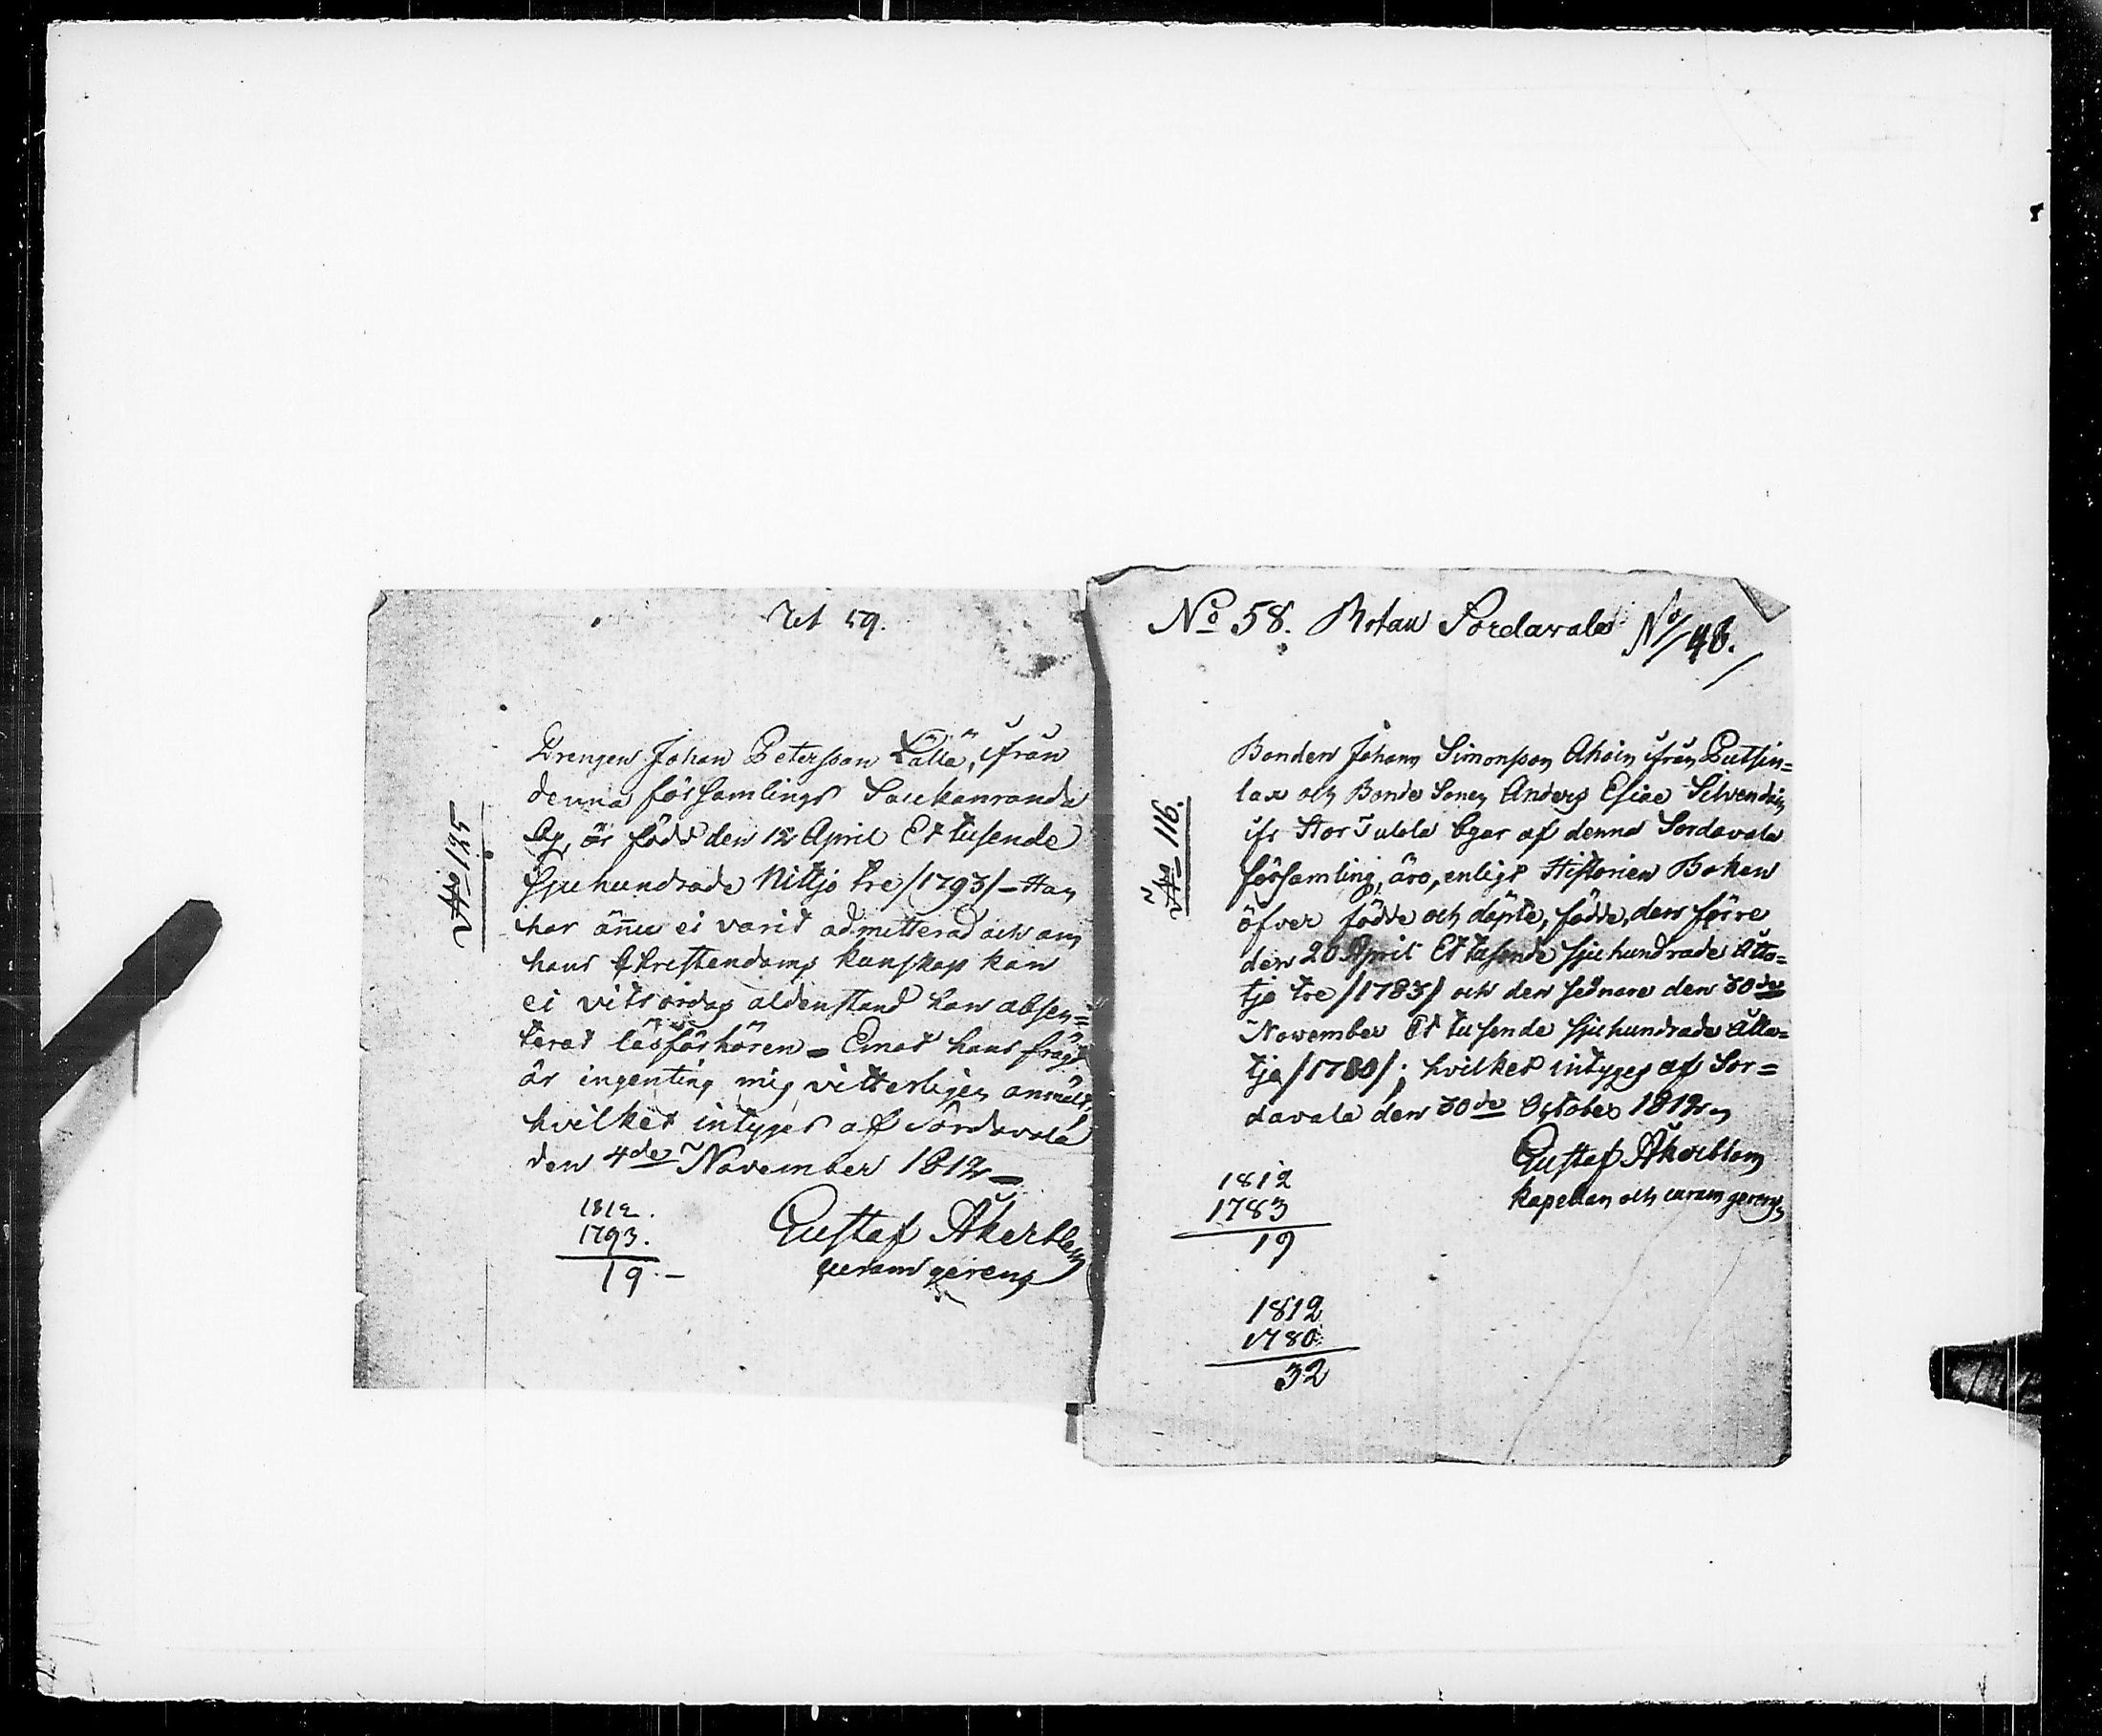 59.
No 125
Drengen Johan Petersson Källä, ifrån
denna församlings Suukanranda
By, är född den 12 April Et tusende
Sjuhundrade Nittjo tre /1793/ – Han
har äñu ei varit admitterad och om
hans Christendoms kunskap kan
ei vitsordas aldenstund han absen=
terat läsförhören – Emot hans frägd
är ingenting mig vitterligen anmält,
hvilket intyges af Sordavala
den 4de November 1812 –
1812.
1793.
19. –
Gustaf Åkerblom
curam gerens
No 58. Rotan Sordavala No/48.
No 116.
Bonden Johan Simonsson Ahoin ifrån Putsin=
lax och Bonde Sonen Anders Esiae Silvendoin
ifr Stor Tulola Byar af denna Sordavala
församling, äro, enligt Historien Boken
öfver födde och döpte, födde, den förre
den 20 April Et tusende sjuhundrade Åtto=
tjo tre /1783/ och den sednare den 30de
November Et tusende sjuhundrade Åtta=
tjo /1780/; hvilket intyges af Sor=
davala den 30de October 1812
Gustaf Åkerblom
Kapellan och curam gerens
1812
1783
19
1812
1780.
32